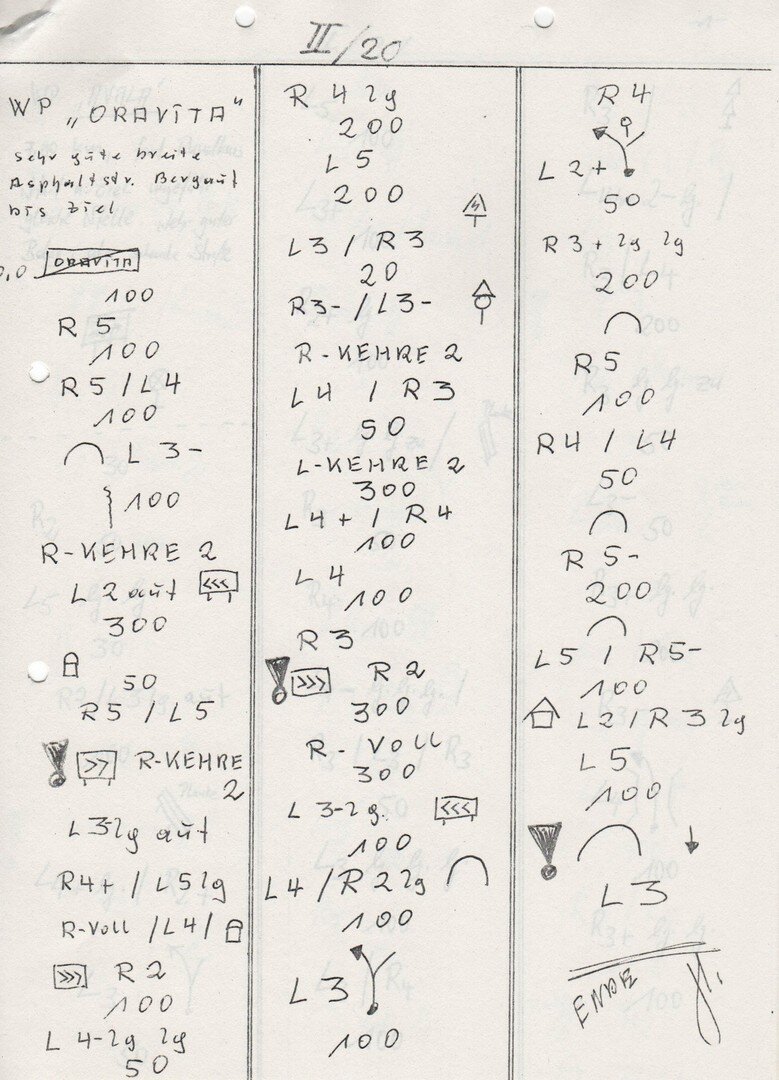 II/20
WP „ORAVIȚA"
sehr gute breite
Asphaltstr. Bergauf
bis Ziel
0,0 ORAVIȚA
100
R 5
100
R 5 / L 4
100
L 3-
100
R-KEHRE 2
L 2 auf <<<
300
50
R 5 / L 5
>> R-KEHRE
2
L 3 lg auf
R4+ / L 5 lg
R-VOLL / L4 /
>>> R 2
100
L 4-lg lg
50
R 4 lg
200
L 5
200
L 3 / R 3
20
R3- / L3-
R-KEHRE 2
L 4 / R 3
50
L-KEHRE 2
300
L 4 + / R 4
100
L 4
100
R 3
>>> R 2
300
R-VOLL
300
L 3-lg. <<<
100
L4 / R 2 lg
100
L 3
100
R 4
L 2+
50
R 3 + lg lg
200
R 5
100
R 4 / L 4
50
R 5-
200
L 5 / R 5-
100
L 2 / R 3 lg
L 5
100
L 3
ENDE